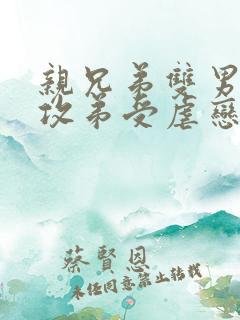 親兄弟雙男
攻弟受虐戀
蔡賢恩
未經同意禁止轉載